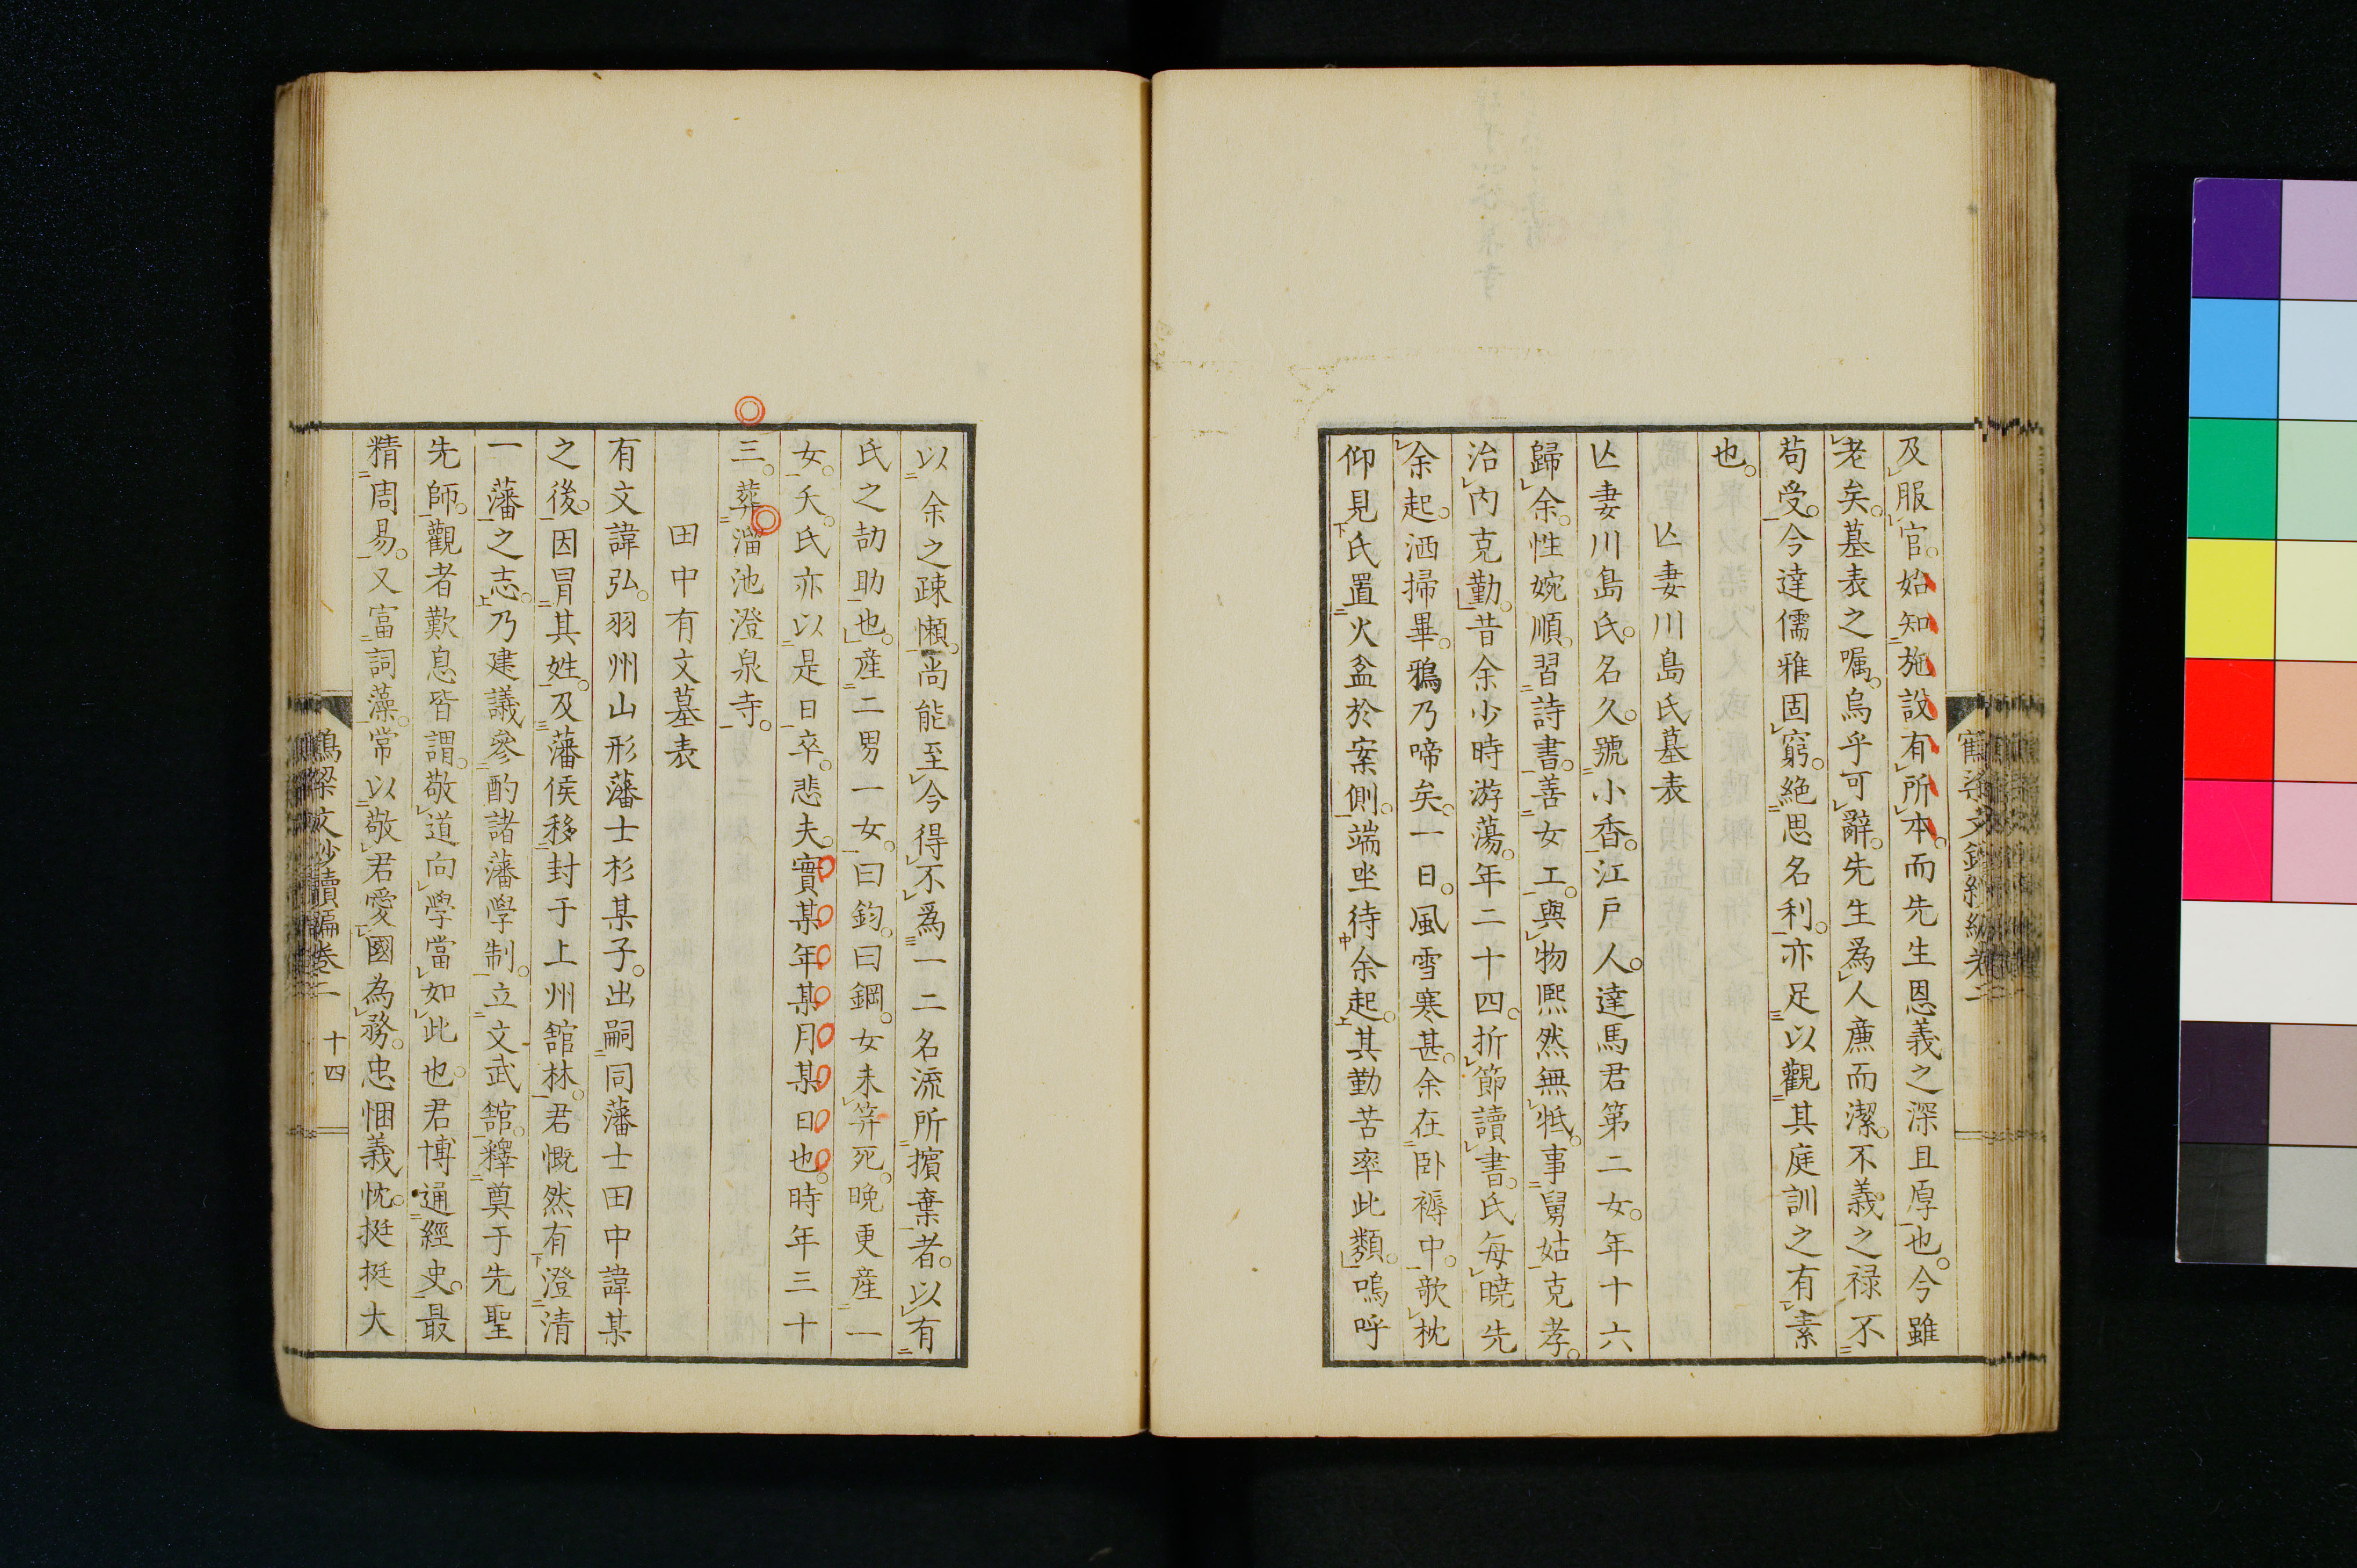 及服官。始知施設有所本。而先生恩義之深且厚也。今雖
老矣。墓表之囑。烏乎可辭。先生爲人亷而潔。不義之禄不
苟受。今達儒雅固窮。絶思名利。亦足以觀其庭訓之有素
也。
亾妻川島氏墓表
亾妻川島氏。名久。號小香。江戸人。達馬君第二女。年十六
歸余。性婉順。習詩書。善女工。與物熈然無牴。事舅姑克孝。
治内克勤。昔余少時游蕩。年二十四。折節讀書。氏每曉先
余起。洒掃畢。鴉乃啼矣。一日。風雪寒甚。余在卧褥中。欹枕
仰見氏置火盆於案側。端坐待余起。其勤苦率此類。嗚呼
以余之疎懶。尚能至今得不爲一二名流所擯棄者。以有
氏之劼助也。産二男一女。曰鈞。曰鋼。女未筓死。晩更産一
女。夭。氏亦以是日卒。悲夫。實某年某月某日也。時年三十
三。葬溜池澄泉寺。
田中有文墓表
有文諱弘。羽州山形藩士杉某子。出嗣同藩士田中諱某
之後。因冐其姓。及藩侯移封于上州舘林。君慨然有澄清
一藩之志。乃建議參酌諸藩學制。立文武舘。釋奠于先聖
先師。觀者歎息皆謂。敬道向學當如此也。君博通經史。最
精周易。又富詞藻。常以敬君愛國為務。忠悃義忱。挺挺大
鶴梁文鈔續編卷二 十四